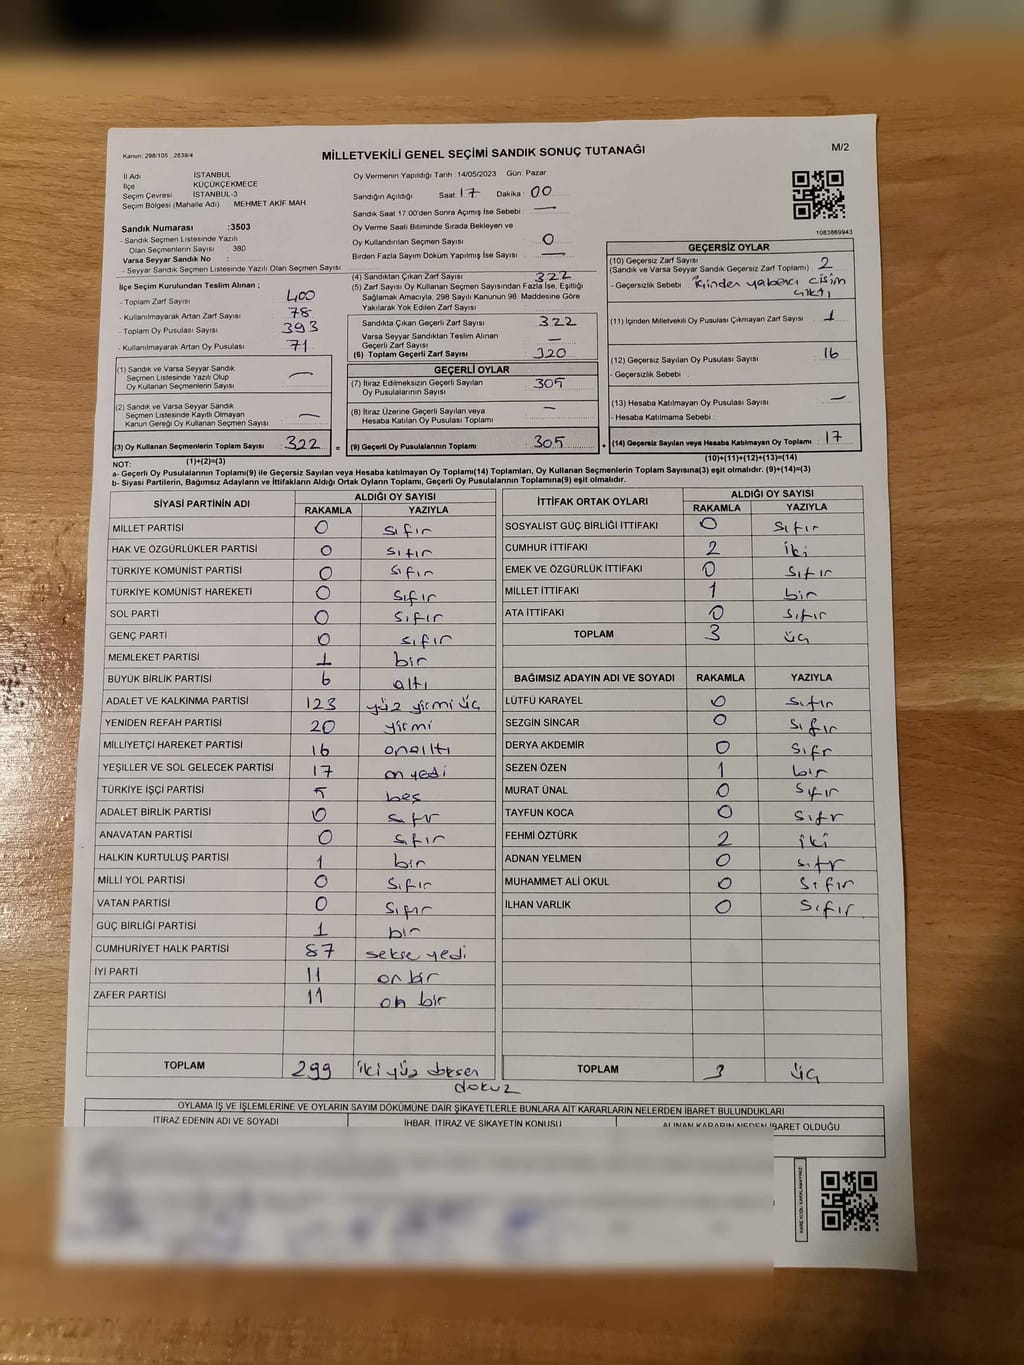 Kanun; 298/105 , 2839/4
MİLLETVEKİLİ GENEL SEÇİMİ SANDIK SONUÇ TUTANAĞI
M/2
İl Adı İSTANBUL
İlçe KÜÇÜKÇEKMECE
Seçim Çevresi İSTANBUL-3
Seçim Bölgesi (Mahalle Adı) MEHMET AKİF MAH
Sandık Numarası :3503
- Sandık Seçmen Listesinde Yazılı
Olan Seçmenlerin Sayısı : 380
Varsa Seyyar Sandık No :
- Seyyar Sandık Seçmen Listesinde Yazılı Olan Seçmen Sayısı
İlçe Seçim Kurulundan Teslim Alınan ;
- Toplam Zarf Sayısı : 400
- Kullanılmayarak Artan Zarf Sayısı : 78
- Toplam Oy Pusulası Sayısı : 393
- Kullanılmayarak Artan Oy Pusulası : 71
(1) Sandık ve Varsa Seyyar Sandık
Seçmen Listesinde Yazılı Olup
Oy Kullanan Seçmenlerin Sayısı : —
(2) Sandık ve Varsa Seyyar Sandık
Seçmen Listesinde Kayıtlı Olmayan
Kanun Gereği Oy Kullanan Seçmen Sayısı : —
(3) Oy Kullanan Seçmenlerin Toplam Sayısı : 322
Oy Vermenin Yapıldığı Tarih : 14/05/2023 Gün: Pazar
Sandığın Açıldığı Saat: 17 Dakika : 00
Sandık Saat 17:00'den Sonra Açımış İse Sebebi : —
Oy Verme Saati Bitiminde Sırada Bekleyen ve
Oy Kullandırılan Seçmen Sayısı : 0
Birden Fazla Sayım Döküm Yapılmış İse Sayısı : —
(4) Sandıktan Çıkan Zarf Sayısı : 322
(5) Zarf Sayısı Oy Kullanan Seçmen Sayısından Fazla İse, Eşitliği
Sağlamak Amacıyla, 298 Sayılı Kanunun 98. Maddesine Göre
Yakılarak Yok Edilen Zarf Sayısı :
Sandıkta Çıkan Geçerli Zarf Sayısı : 322
Varsa Seyyar Sandıktan Teslim Alınan
Geçerli Zarf Sayısı : —
(6) Toplam Geçerli Zarf Sayısı : 320
GEÇERLİ OYLAR
(7) İtiraz Edilmeksizin Geçerli Sayılan
Oy Pusulalarının Sayısı : 305
(8) İtiraz Üzerine Geçerli Sayılan veya
Hesaba Katılan Oy Pusulası Toplamı : —
= (9) Geçerli Oy Pusulalarının Toplamı : 305
1083869943
GEÇERSİZ OYLAR
(10) Geçersiz Zarf Sayısı
(Sandık ve Varsa Seyyar Sandık Geçersiz Zarf Toplamı) : 2
- Geçersizlik Sebebi : içinden yabancı cisim
çıktı
(11) İçinden Milletvekili Oy Pusulası Çıkmayan Zarf Sayısı : 1
(12) Geçersiz Sayılan Oy Pusulası Sayısı : 16
- Geçersizlik Sebebi :
(13) Hesaba Katılmayan Oy Pusulası Sayısı : —
- Hesaba Katılmama Sebebi :
+ (14) Geçersiz Sayılan veya Hesaba Katılmayan Oy Toplamı : 17
NOT: (1)+(2)=(3) (10)+(11)+(12)+(13)=(14)
a- Geçerli Oy Pusulalarının Toplamı(9) ile Geçersiz Sayılan veya Hesaba katılmayan Oy Toplamı(14) Toplamları, Oy Kullanan Seçmenlerin Toplam Sayısına(3) eşit olmalıdır. (9)+(14)=(3)
b- Siyasi Partilerin, Bağımsız Adayların ve İttifakların Aldığı Ortak Oyların Toplamı, Geçerli Oy Pusulalarının Toplamına(9) eşit olmalıdır.
SİYASİ PARTİNİN ADI ALDIĞI OY SAYISI
RAKAMLA YAZIYLA
MİLLET PARTİSİ 0 sıfır
HAK VE ÖZGÜRLÜKLER PARTİSİ 0 sıfır
TÜRKİYE KOMÜNİST PARTİSİ 0 sıfır
TÜRKİYE KOMÜNİST HAREKETİ 0 sıfır
SOL PARTİ 0 sıfır
GENÇ PARTİ 0 sıfır
MEMLEKET PARTİSİ 1 bir
BÜYÜK BİRLİK PARTİSİ 6 altı
ADALET VE KALKINMA PARTİSİ 123 yüz yirmi üç
YENİDEN REFAH PARTİSİ 20 yirmi
MİLLİYETÇİ HAREKET PARTİSİ 16 onaltı
YEŞİLLER VE SOL GELECEK PARTİSİ 17 on yedi
TÜRKİYE İŞÇİ PARTİSİ 5 beş
ADALET BİRLİK PARTİSİ 0 sıfır
ANAVATAN PARTİSİ 0 sıfır
HALKIN KURTULUŞ PARTİSİ 1 bir
MİLLİ YOL PARTİSİ 0 sıfır
VATAN PARTİSİ 0 sıfır
GÜÇ BİRLİĞİ PARTİSİ 1 bir
CUMHURİYET HALK PARTİSİ 87 sekse yedi
İYİ PARTİ 11 on bir
ZAFER PARTİSİ 11 on bir
TOPLAM 299 iki yüz doksan
dokuz
İTTİFAK ORTAK OYLARI ALDIĞI OY SAYISI
RAKAMLA YAZIYLA
SOSYALİST GÜÇ BİRLİĞİ İTTİFAKI 0 sıfır
CUMHUR İTTİFAKI 2 iki
EMEK VE ÖZGÜRLÜK İTTİFAKI 0 sıfır
MİLLET İTTİFAKI 1 bir
ATA İTTİFAKI 0 sıfır
TOPLAM 3 üç
BAĞIMSIZ ADAYIN ADI VE SOYADI RAKAMLA YAZIYLA
LÜTFÜ KARAYEL 0 sıfır
SEZGİN SİNCAR 0 sıfır
DERYA AKDEMİR 0 sıfr
SEZEN ÖZEN 1 bir
MURAT ÜNAL 0 sıfır
TAYFUN KOCA 0 sıfr
FEHMİ ÖZTÜRK 2 iki
ADNAN YELMEN 0 sıfr
MUHAMMET ALİ OKUL 0 sıfır
İLHAN VARLIK 0 sıfır
TOPLAM 3 üç
OYLAMA İŞ VE İŞLEMLERİNE VE OYLARIN SAYIM DÖKÜMÜNE DAİR ŞİKAYETLERLE BUNLARA AİT KARARLARIN NELERDEN İBARET BULUNDUKLARI
İTİRAZ EDENİN ADI VE SOYADI İHBAR, İTİRAZ VE ŞİKAYETİN KONUSU ALINAN KARARIN NEDEN İBARET OLDUĞU
KARE KODU KARALAMAYINIZ!